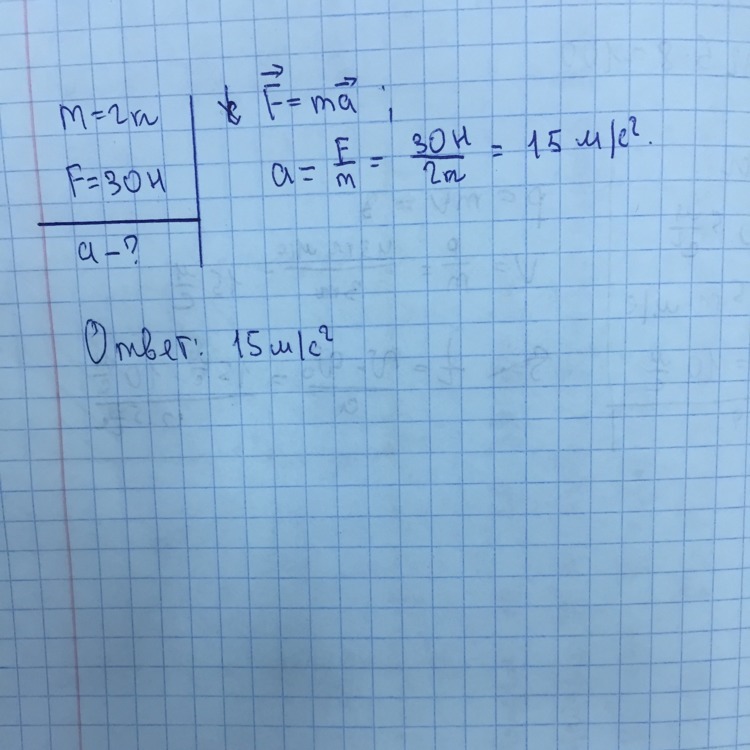 m = 2т
F = 30Н
a – ?
F⃗ = ma⃗ ;
a = F/m = 30Н/2т = 15 м/с².
Ответ: 15 м/с²